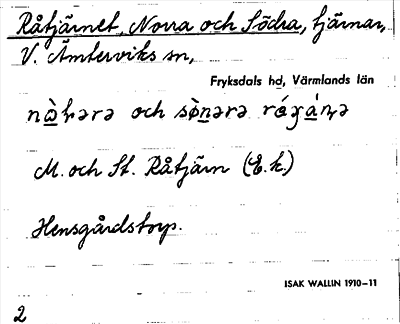 Råtjärnet, Norra och Södra, tjärnar,
V. Ämterviks sn,
Fryksdals hd, Värmlands län
och
M. och St. Råtjärn (E.k.)
Hensgårdstorp.
ISAK WALLIN 1910–11
2